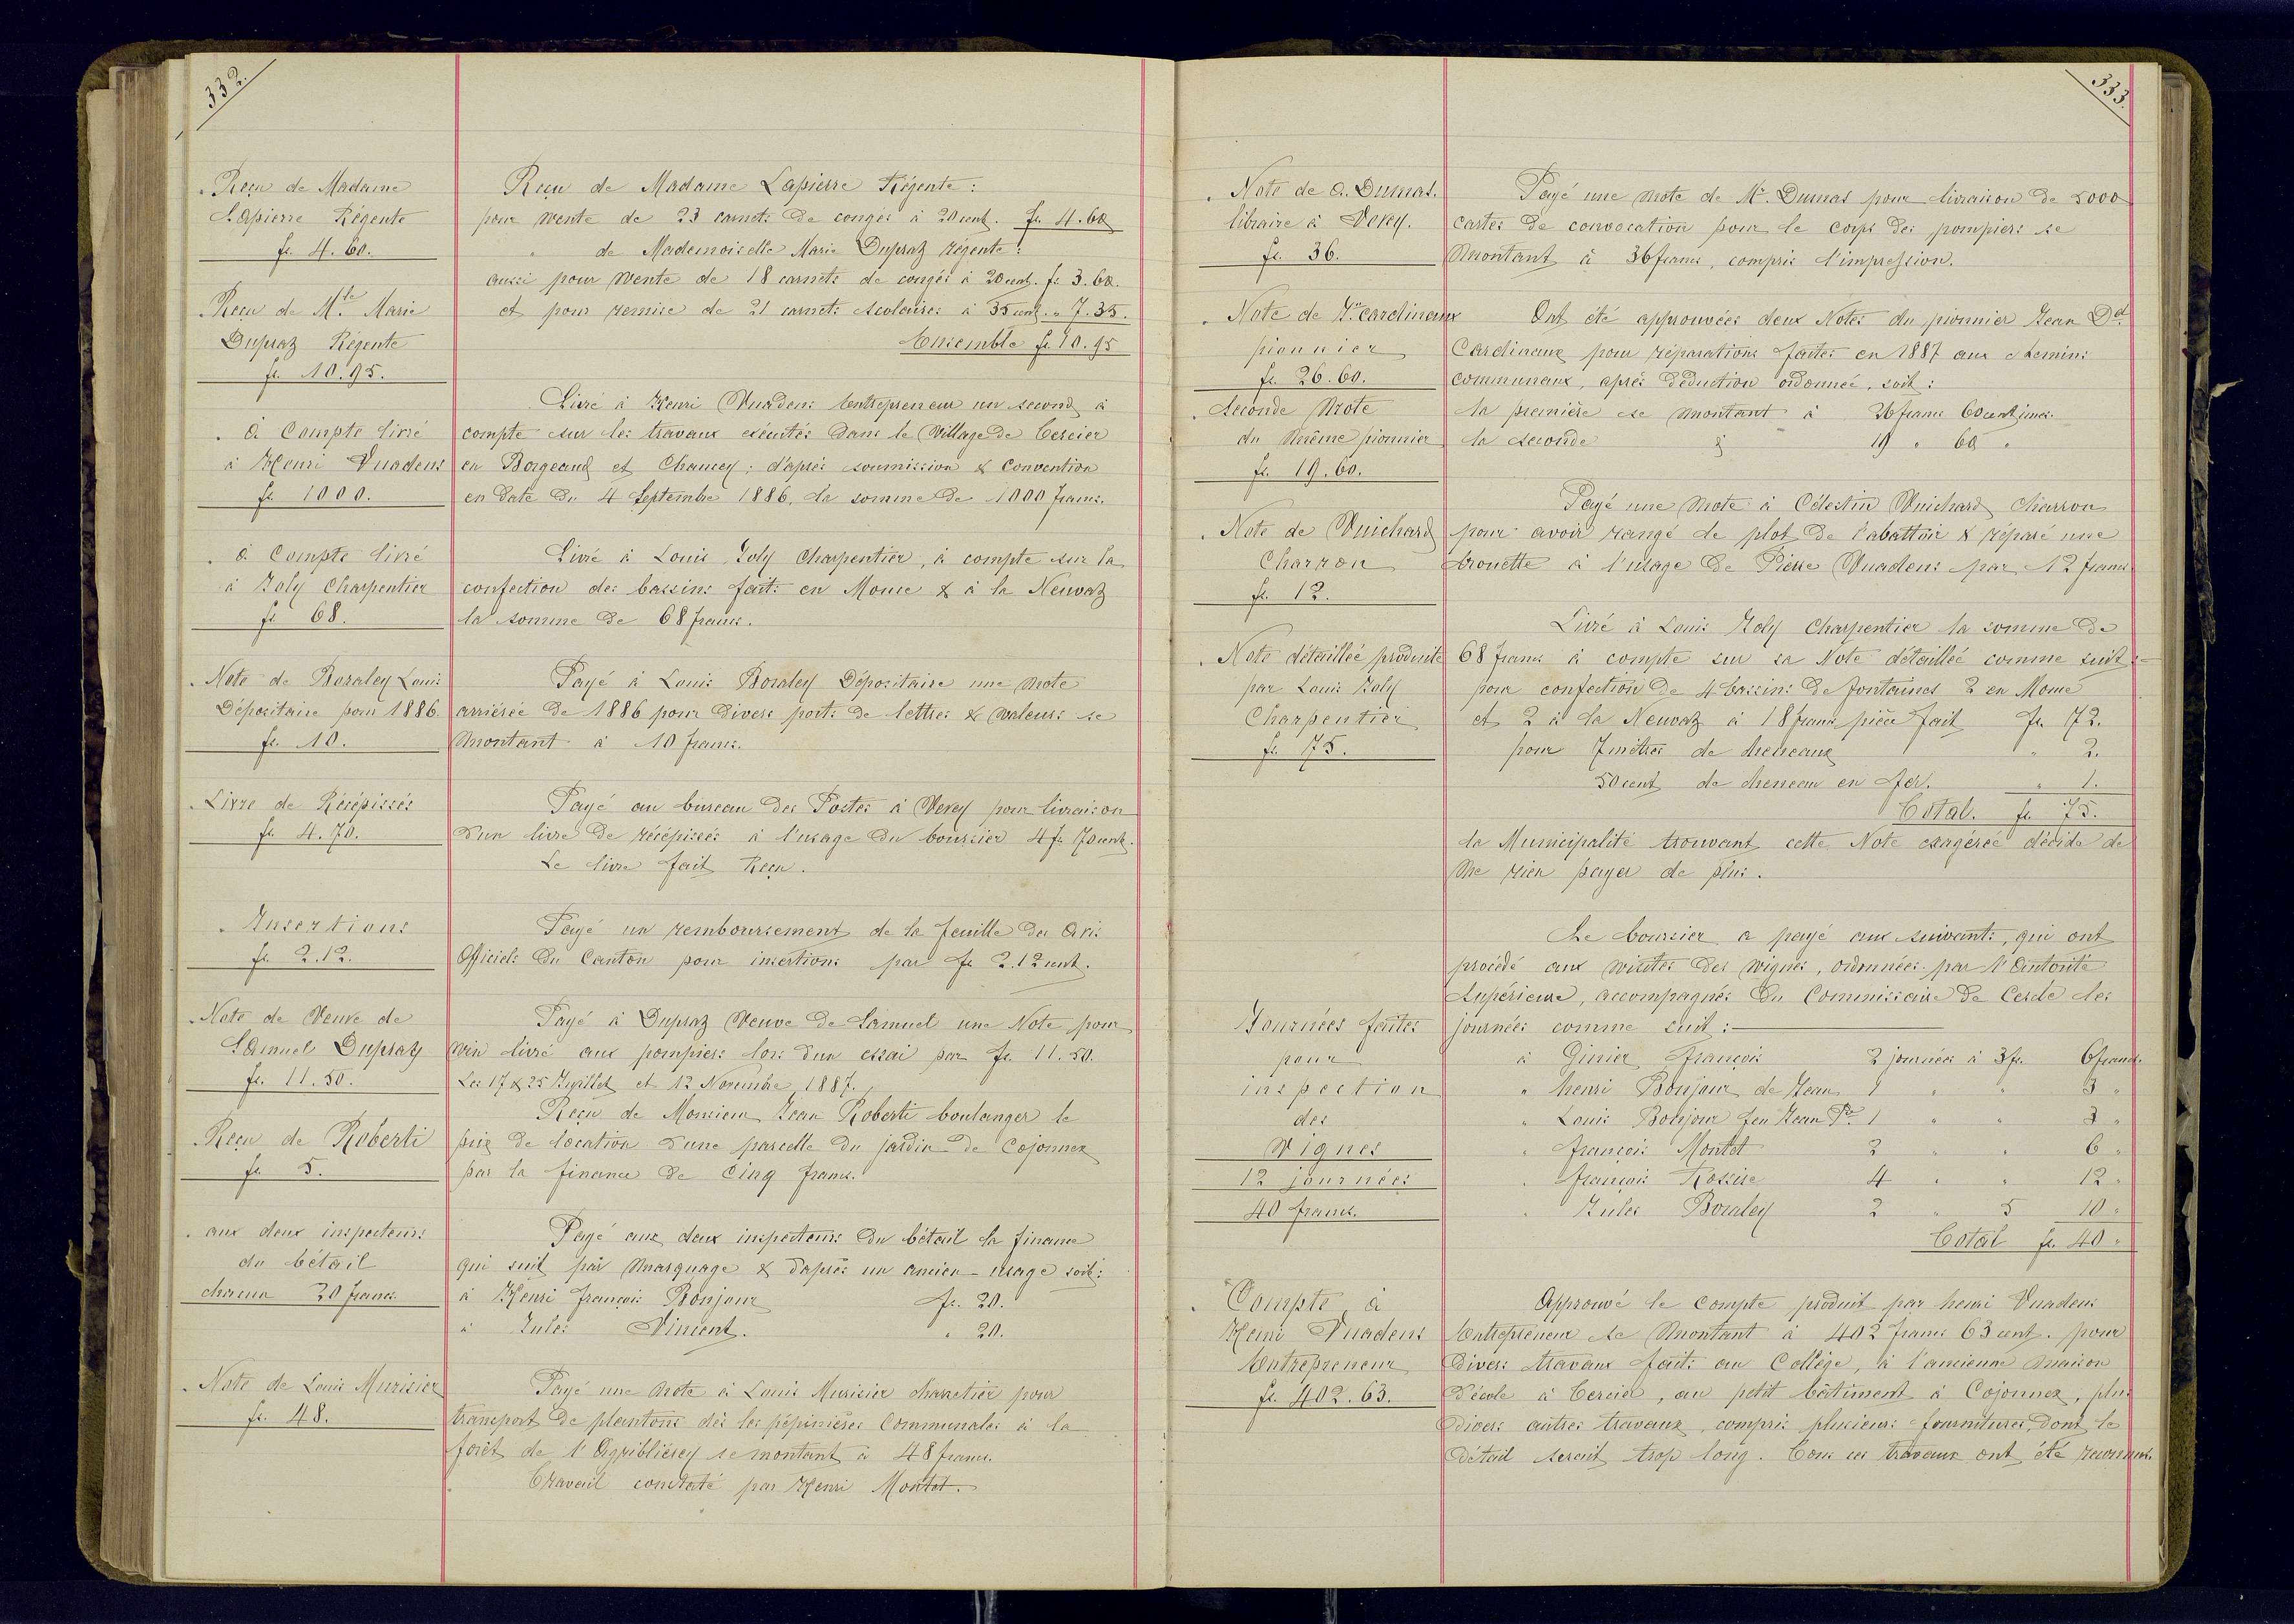 332.
Reçu de Madame
Lapierre Régente
fr. 4.60.
Reçu de Mlle Marie
Dupraz Régente
fr. 10.95.
à Compte livré
à Henri Vuadens
fr. 1000.
à Compte livré
à Joly Charpentier
fr. 68.
Note de Boraley Louis
Dépositaire pour 1886.
fr. 10.
Livre de Récépissés
fr. 4.70.
Insertions
fr. 2.12.
Note de Veuve de
Samuel Dupraz
fr. 11.50.
Reçu de Roberti
fr. 5.
aux deux inspecteurs
du bétail
chacun 20 francs
Note de Louis Murisier
fr. 48.
Reçu de Madame Lapierre Régente :
pour vente de 23 carnets de congés à 20 cent. fr. 4.60
" de Mademoiselle Marie Dupraz régente :
aussi pour vente de 18 carnets de congés à 20 cent. fr. 3.60.
et pour remise de 21 carnets scolaires à 35 cent. " 7.35.
Ensemble fr. 10.95
Livré à Henri Vuadens Entrepreneur un second à
compte sur les travaux exécutés dans le Village de Tercier
en Borgeaud et Chaucey ; d'après soumission & Convention
en date du 4 Septembre 1886, la somme de 1000 francs.
Livré à Louis Joly Charpentier, à compte sur la
confection des bassins faits en Mome & à la Neuvaz
la somme de 68 francs.
Payé à Louis Boraley Dépositaire une note
arriérée de 1886 pour divers ports de lettres & valeurs se
montant à 10 francs.
Payé au bureau des Postes à Vevey pour livraison
d'un livre de récépissés à l'usage du boursier 4 fr. 70 cent.
Le livre fait Reçu.
Payé un remboursement de la feuille des Avis
Officiels du Canton pour insertions par fr 2.12 cent.
Payé à Dupraz Veuve de Samuel une Note pour
vin livré aux pompiers lors d'un essai par fr. 11.50.
Les 17 & 25 Juillet et 12 Novembre 1887.
Reçu de Monsieur Jean Roberti boulanger le
prix de location d'une parcelle du jardin de Cojonnex
par la finance de Cinq francs.
Payé aux deux inspecteurs du bétail la finance
qui suit par marquage & d'après un ancien usage soit :
à Henri François Bonjour fr. 20.
à Jules Vincent. " 20.
Payé une note à Louis Murisier charretier pour
transport de plantons dès les pépinières Communales à la
forêt de l'Agribliérey se montant à 48 francs.
Travail constaté par Henri Montet.
333.
Note de A. Dumas.
libraire à Vevey.
fr. 36.
Note de Jn cardinaux
pionnier
fr. 26.60.
Seconde Note
du même pionnier
fr. 19.60.
Note de Vuichard
Charron
fr. 12.
Note détaillée produite
par Louis Joly
Charpentier
fr. 75.
Journées faites
pour
inspection
des
Vignes
12 journées
40 francs.
Compte à
Henri Vuadens
Entrepreneur
fr. 402.63.
Payé une note de Mr. Dumas pour livraison de 5000
cartes de convocation pour le corps des pompiers se
montant à 36 francs, compris l'impression.
Ont été approuvées deux Notes du pionnier Jean Dd
Cardinaux pour réparations faites en 1887 aux chemins
communaux, après déduction ordonnée, soit :
la première se montant à 26 francs 60 centimes.
la seconde à 19 " 60 "
Payé une note à Célestin Vuichard charron
pour avoir rangé le plot de l'abattoir & réparé une
brouette à l'usage de Pierre Vuadens par 12 francs
Livré à Louis Joly Charpentier la somme de
68 francs à compte sur sa Note détaillée comme suit :
pour confection de 4 bassins de fontaines 2 en Mome
et 2 à la Neuvaz à 18 francs pièce fait fr. 72.
pour 7 mètres de cheneaux " 2.
50 cent. de cheneau en fer. " 1.
Total. fr. 75.
la Municipalité trouvant cette Note exagérée décide de
ne rien payer de plus.
Le boursier a payé aux suivants, qui ont
procédé aux visites des vignes, ordonnées par l'Autorité
Supérieure, accompagnés du Commissaire de Cercle les
journées comme suit :
à Ginier François 2 journées à 3 fr. 6 francs.
" henri Bonjour de Jean 1 " " 3 "
" Louis Bonjour feu Jean Pre 1 " " 3 "
" françois Montet 2 " " 6 "
" françois Rossire 4 " " 12 "
" Jules Boraley 2 " 5 10 "
Total fr. 40 "
Approuvé le compte produit par henri Vuadens
Entrepreneur se montant à 402 francs 63 cent. pour
divers travaux faits au Collège, à l'ancienne maison
d'école à Tercier, au petit bâtiment à Cojonnex, plus
divers autres travaux, compris plusieurs fournitures, dont le
détail serait trop long. Tous ces travaux ont été reconnus.